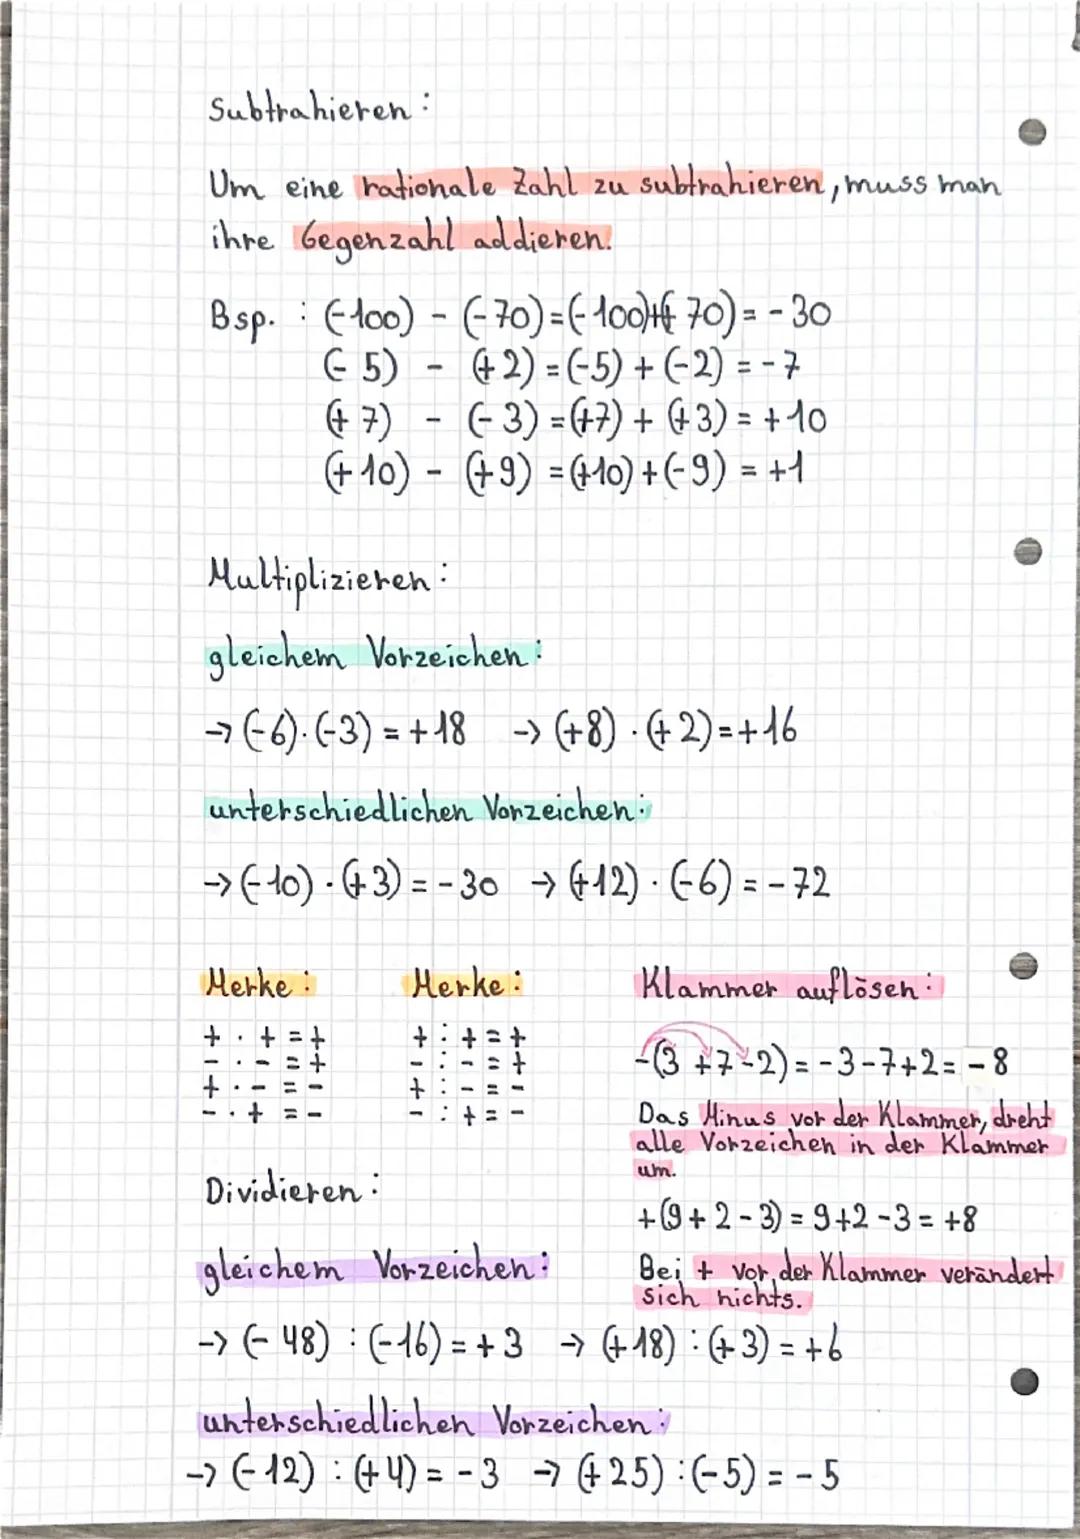 Subtrahieren:
Um eine rationale Zahl zu subtrahieren, muss man
ihre Gegenzahl addieren.
Bsp. : (-100) - (-70) = (-100)+(+70) = -30
(-5) - (+2) = (-5) + (-2) = -7
(+7) - (-3) = (+7) + (+3) = +10
(+10) - (+9) = (+10) + (-9) = +1
Multiplizieren:
gleichem Vorzeichen:
→ (-6)·(-3) = +18 → (+8)·(+2) = +16
unterschiedlichen Vorzeichen:
→ (-10)·(+3) = -30 → (+12)·(-6) = -72
Merke:
+ · + = +
- · - = +
+ · - = -
- · + = -
Merke:
+ : + = +
- : - = +
+ : - = -
- : + = -
Klammer auflösen:
-(3 +7 -2) = -3 -7 +2 = -8
Das Minus vor der Klammer, dreht
alle Vorzeichen in der Klammer
um.
+(9 + 2 - 3) = 9 + 2 - 3 = +8
Bei + vor der Klammer verändert
sich nichts.
Dividieren:
gleichem Vorzeichen:
→ (-48) : (-16) = +3 → (+18) : (+3) = +6
unterschiedlichen Vorzeichen:
→ (-12) : (+4) = -3 → (+25) : (-5) = -5